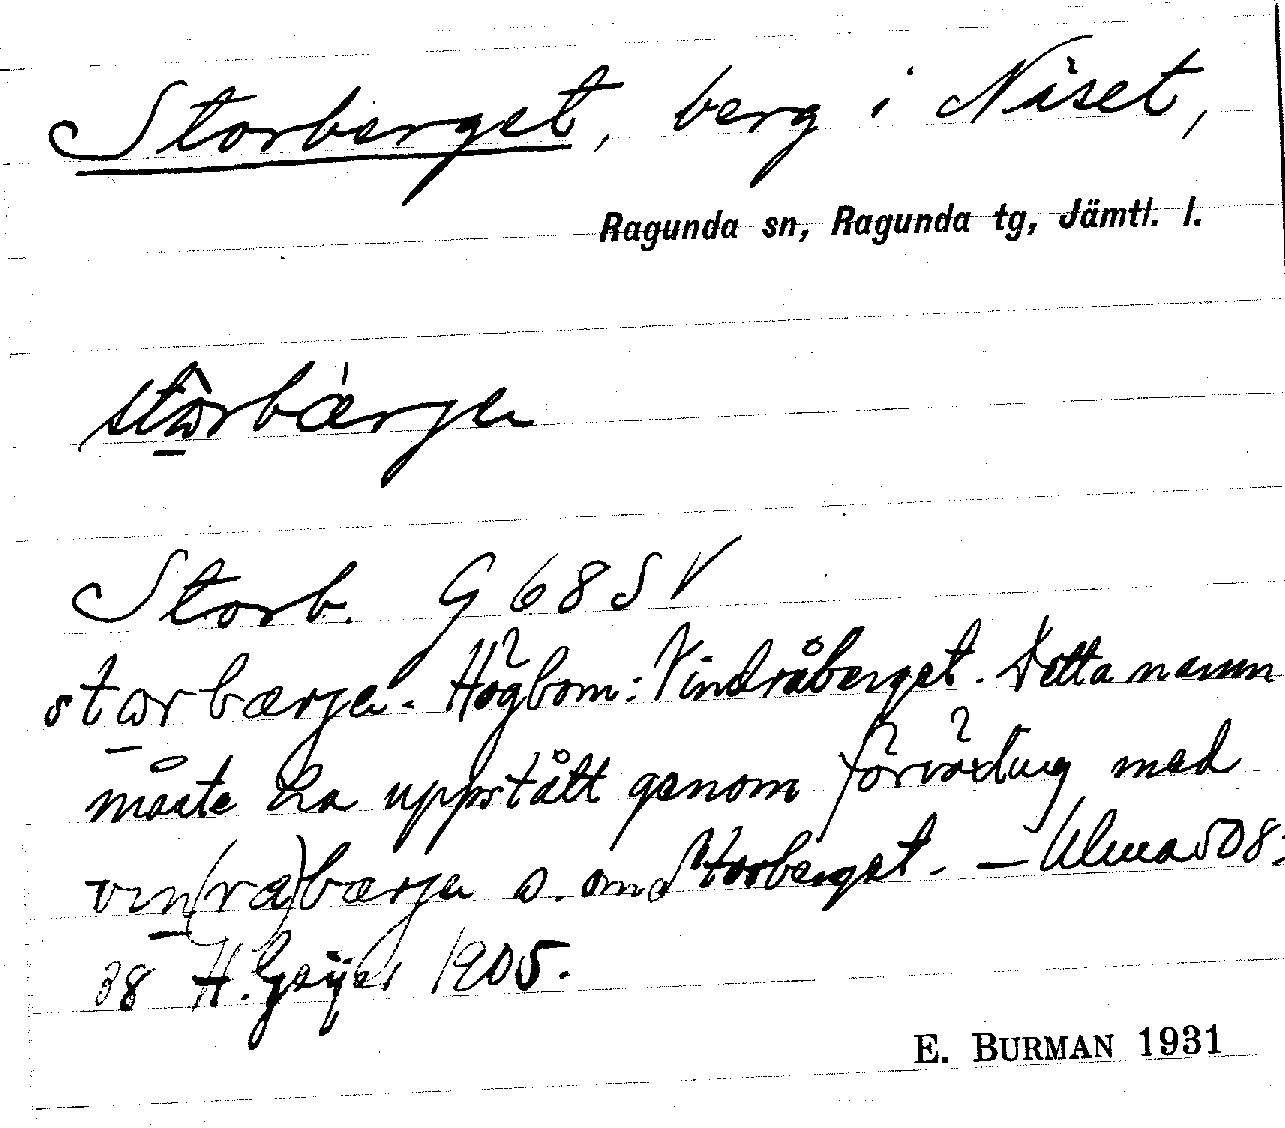 Storberget, berg i Näset,
Ragunda sn, Ragunda tg, Jämtl. l.
storbærje
Storb. G 68 SV
storbærje. Högbom: Vindråberget. Detta namn
måste ha uppstått genom förväxling med
vin(ra)bærje o. om Storberget. — Ulma 508:
38 H. Geijer 1905.
E. BURMAN 1931